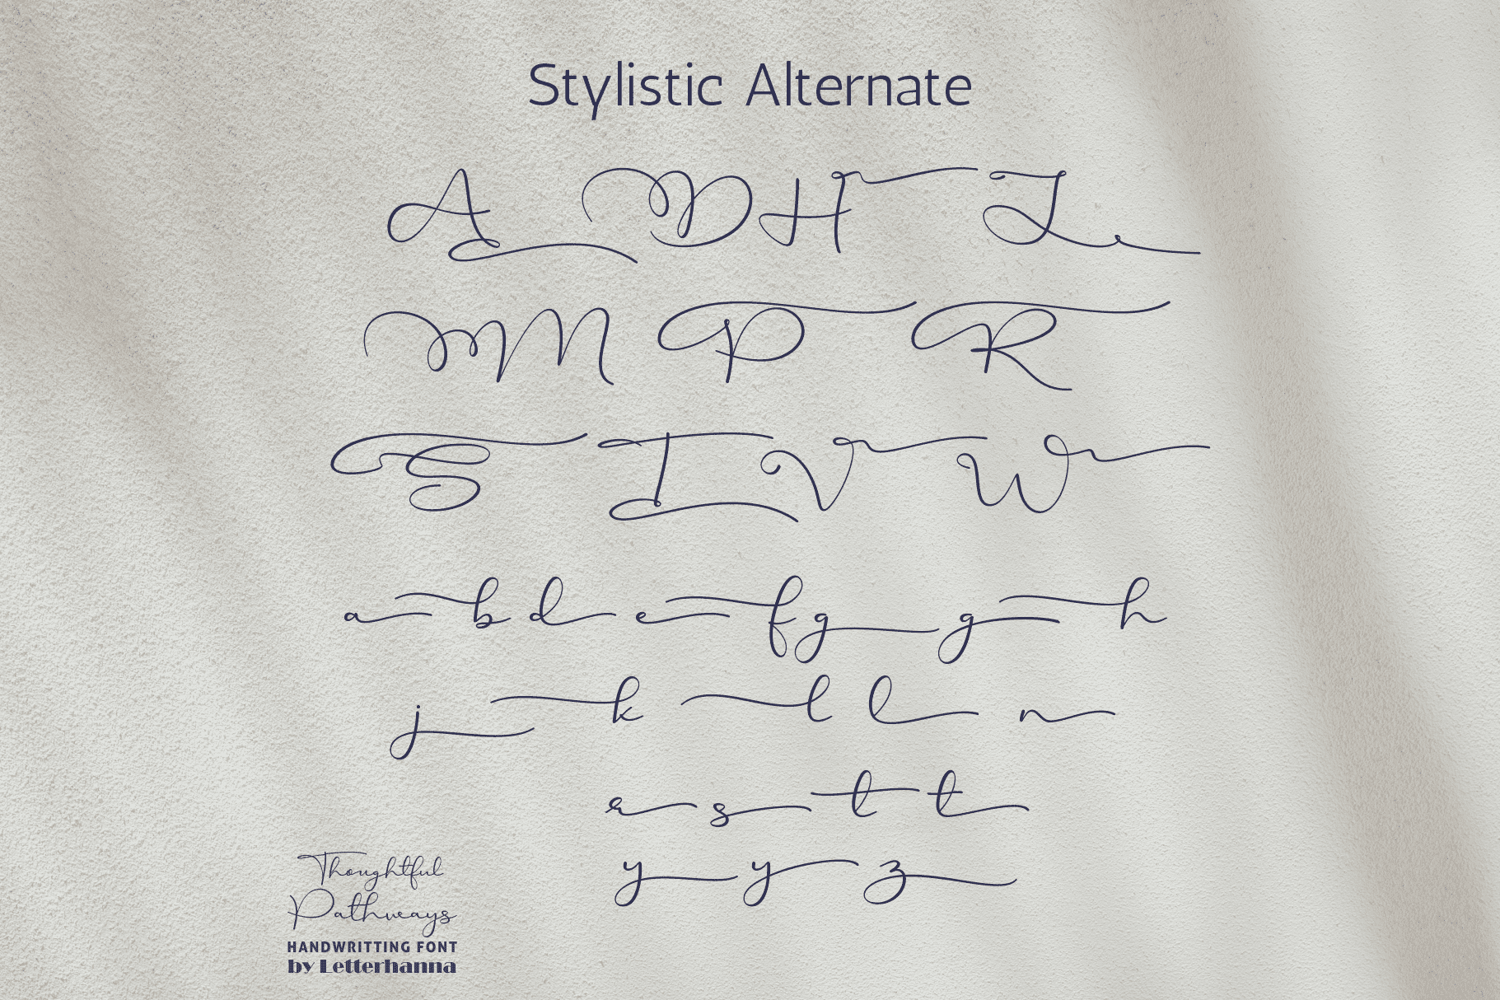 Stylistic Alternate
A D H I
M P R
S T V W
a b d e f g g h
j k l l n
r s t t
y y z
Thoughtful
Pathways
HANDWRITTING FONT
by Letterhanna